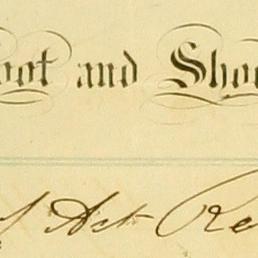 oot and Sho
of Act Re